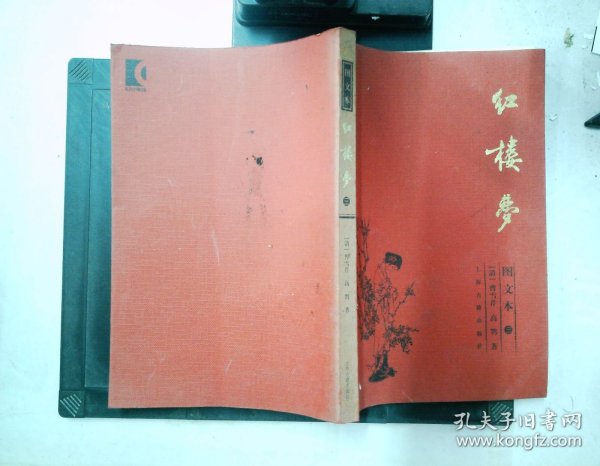 红楼梦
图文本 三
[清] 曹雪芹 高鹗 著
上海古籍出版社
图文本
红楼梦 三
[清] 曹雪芹 高鹗 著
孔夫子旧书网
www.kongfz.com